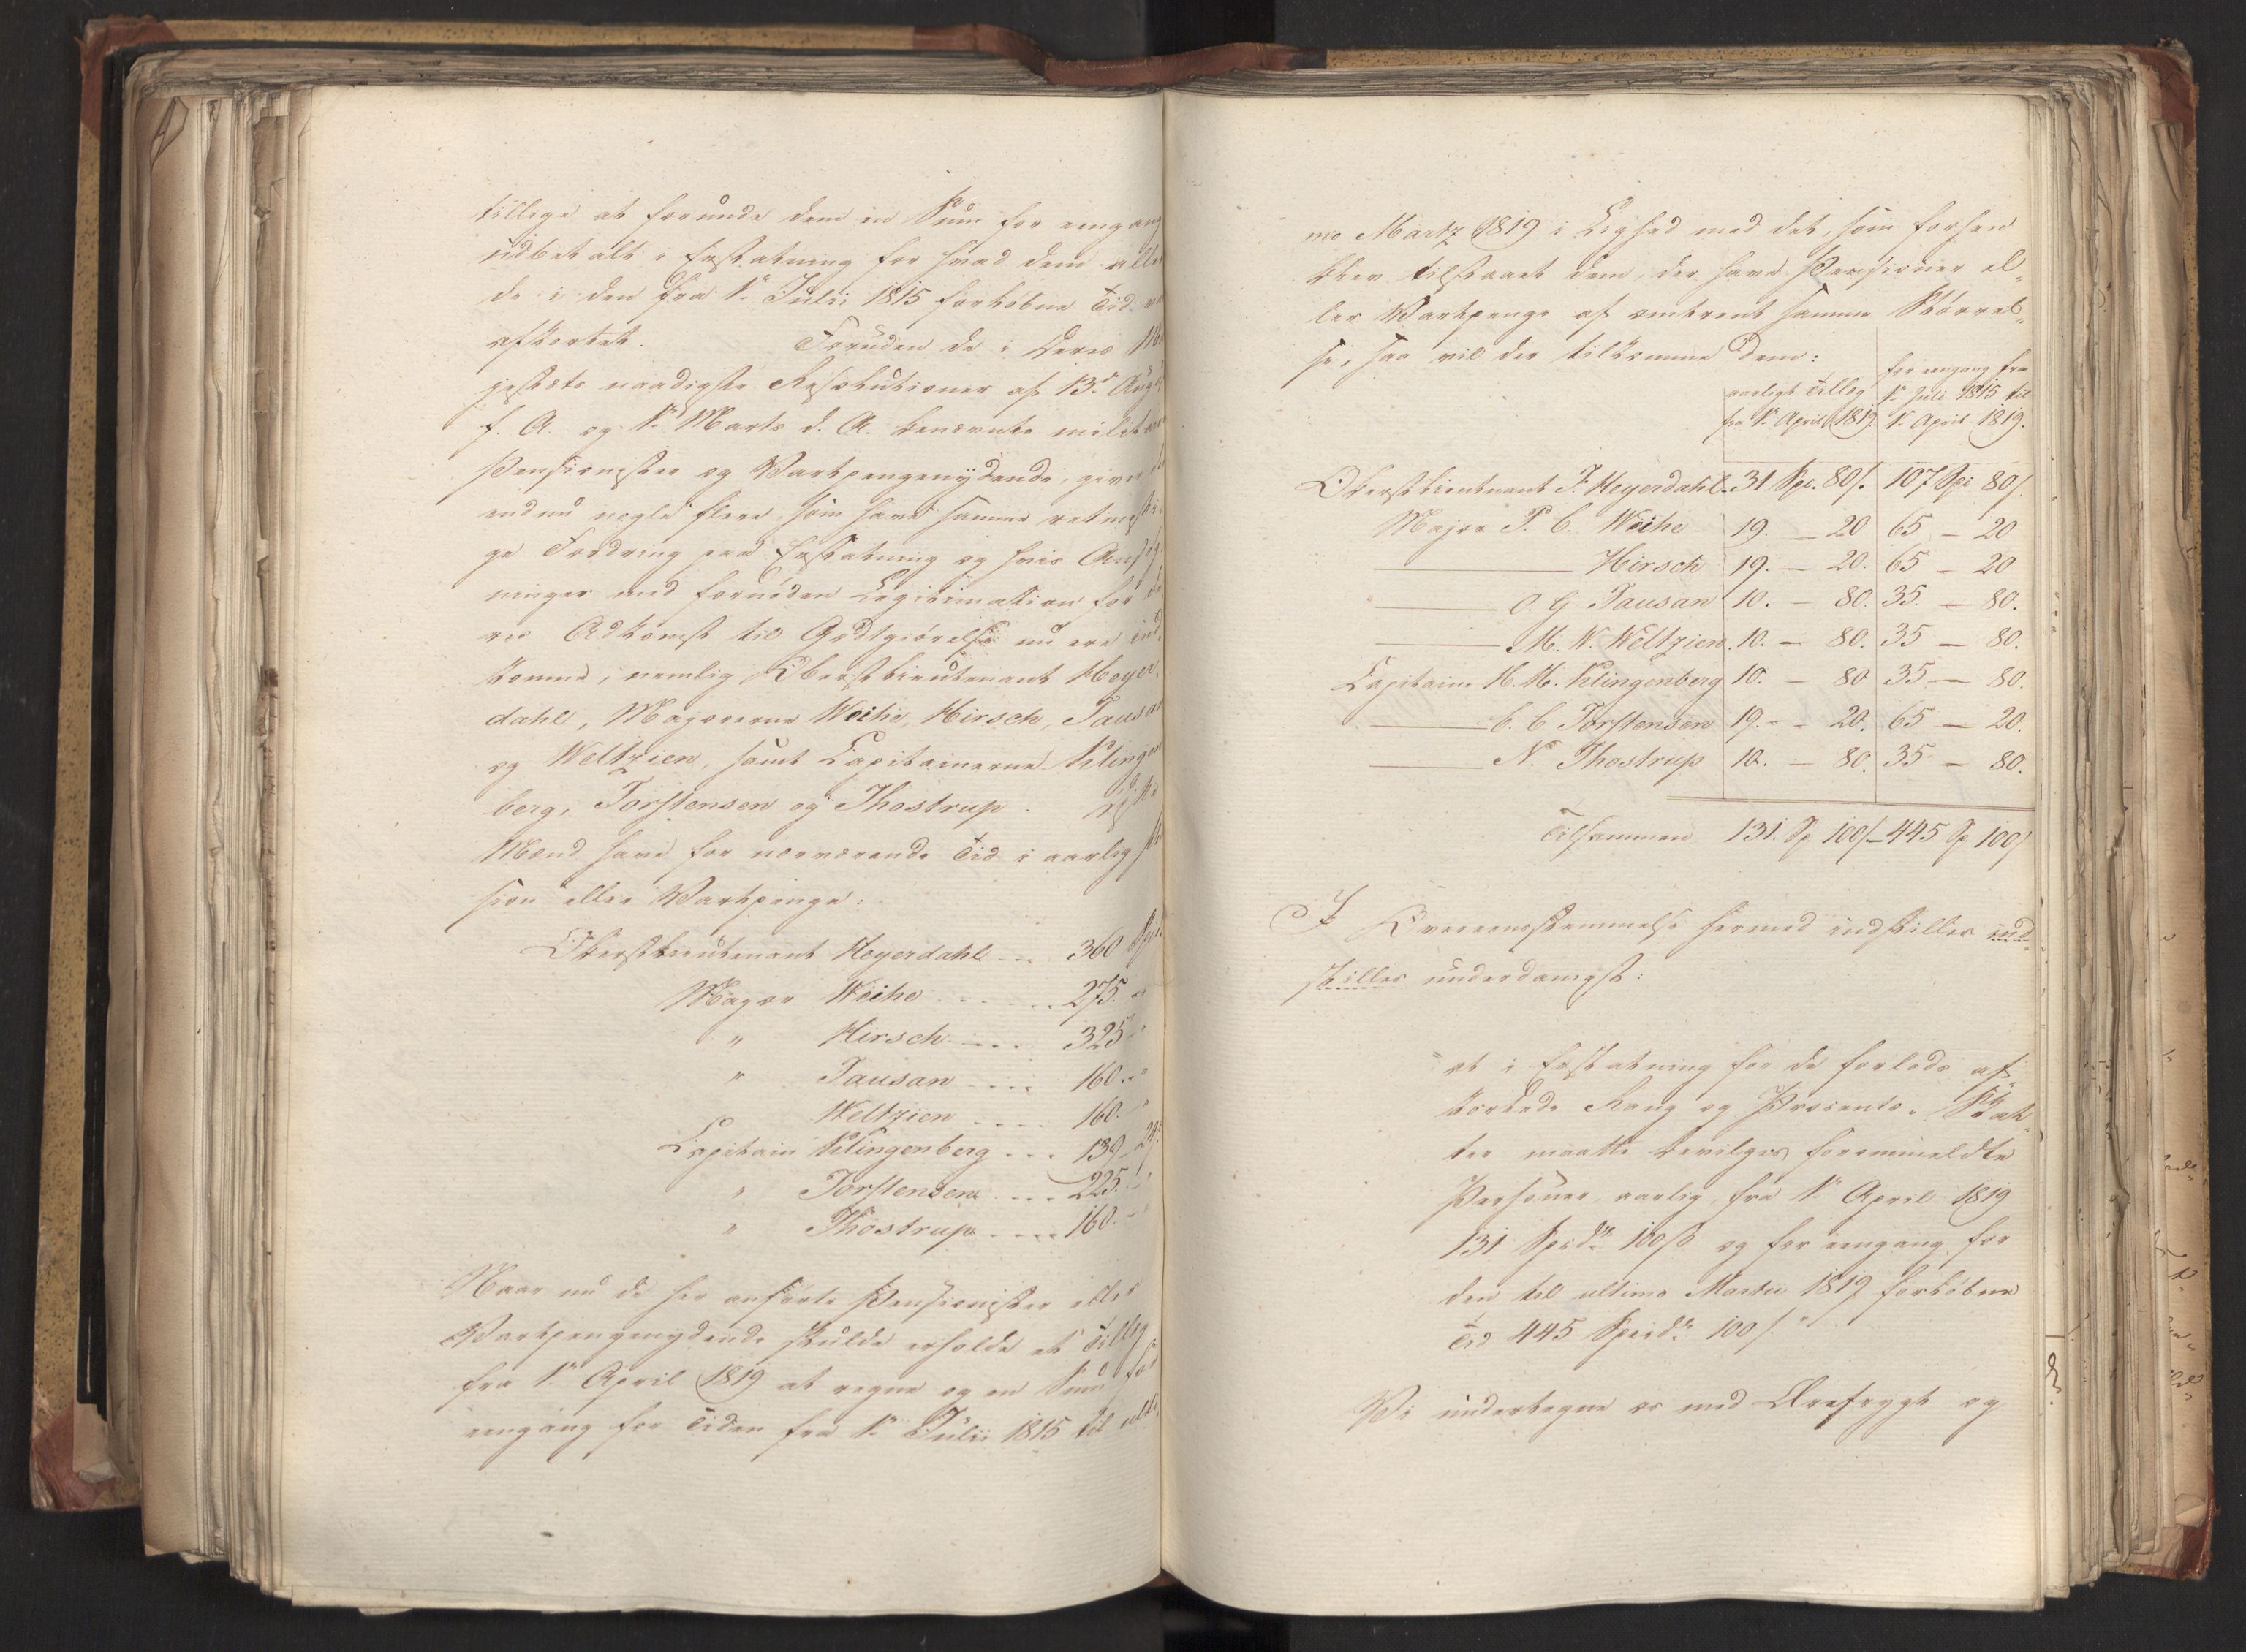 tillige at forunde dem en Sum for eengang
udbetalt i Erstatning for hvad dem alle
de i den fra 1ste Julii 1815 forløbne Tid
afkortet. Foruden de i Deres Ma
jestæts naadigste Resolutioner af 13de Aug
f. A. og 1ste Marts d. A. benævnte militær
Pensionister og Vartpengenydende, gives
endnu nogle flere, som have samme retmæssi
ge Fordring paa Erstatning og hvis Ansøg
ninger med fornøden Legitimation for de
res Adkomst til Godtgiørelse nu ere ind
komne, nemlig Oberstlieutenant Heyer
dahl, Majorerne Weihe, Hirsch, Tausan
og Weltzien, samt Capitainerne Klingen
berg, Torstensen og Thostrup.
Mænd have for nærværende Tid i aarlig
sion eller Vartpenge:
Oberstlieutenant Heyerdahl 360 Spd
Major Weihe 275. "
" Hirsch 325 "
" Tausan 160. "
Weltzien 160. "
Capitain Klingenberg 139 24
" Torstensen 225. "
" Thostrup 160. "
Naar nu de her anførte Pensionister eller
Vartpengenydende skulde erholde et Tillæg
fra 1ste April 1819 at regne og en Sum for
eengang for Tiden fra 1ste Julii 1815 til ulti
mo Martz 1819 i Lighed med det, som forhen
blev tilstaaet dem, der have Pensioner el-
ler Vartpenge af omtrent samme Størrel-
se, saa vil der tilkomme dem:
aarligt Tillæg fra 1ste April 1819. for eengang fra 1ste Juli 1815 til 1ste April 1819.
Oberstlieutenant F. Heyerdahl 31 Spe. 80/. 107 Spe 80/.
Major P. C. Weihe 19. — 20 65 — 20
——— Hirsch 19. — 20. 65 — 20
——— O. G Tausan 10. — 80. 35. — 80.
——— M. W. Weltzien. 10. — 80. 35 — 80.
Capitain H. H. Klingenberg 10. — 80 35 — 80.
——— C. C Torstensen 19. — 20. 65 — 20.
——— N. Thostrup 10. — 80. 35 — 80.
Tilsammen 131. Sp 100/ — 445 Sp 100/
I Overeensstemmelse hermed indstilles ind-
stilles underdanigst:
"at i Erstatning for de forlods af-
kortede Rang og Procents-Skat-
ter maatte bevilges foranmeldte
Personer aarlig, fra 1ste April 1819
131 Spdlr 100 ß og for eengang for
den til ultimo Martii 1819 forløbne
Tid 445 Speidlr 100/."
Vi undertegne os med Ærefrygt og